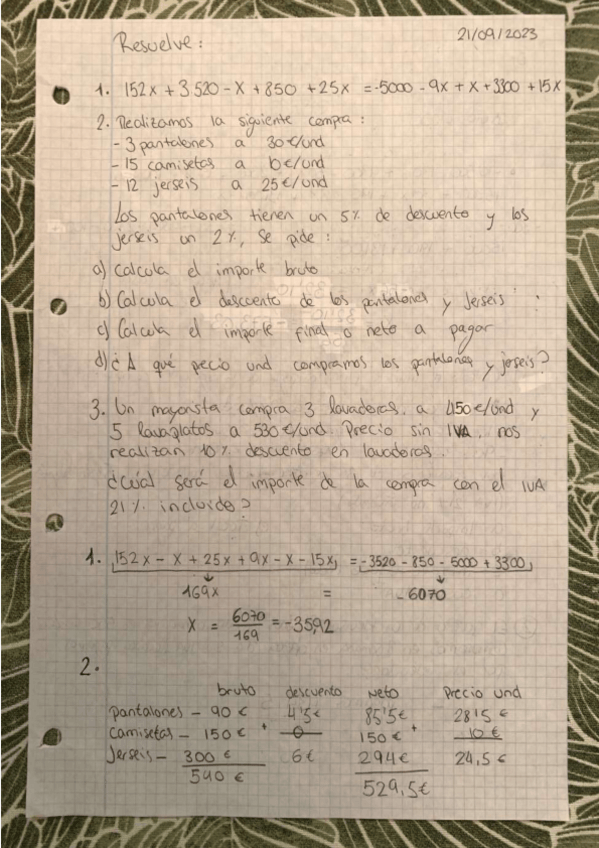 21/09/2023
Resuelve:
1. 152x + 3520 - x + 850 + 25x = -5000 - 9x + x + 3300 + 15x
2. Realizamos la siguiente compra:
- 3 pantalones a 30€/und
- 15 camisetas a 10€/und
- 12 jerseis a 25€/und
Los pantalones tienen un 5% de descuento y los
jerseis un 2%, Se pide:
a) Calcula el importe bruto
b) Calcula el descuento de los pantalones y Jerseis
c) Calcula el importe final o neto a pagar
d) ¿A qué precio und compramos los pantalones y jerseis?
3. Un mayorista compra 3 lavadoras a 450€/und y
5 lavaplatos a 530€/und. Precio sin IVA, nos
realizan 10% descuento en lavadoras.
¿Cuál será el importe de la compra con el IVA
21% incluido?
1. 152x - x + 25x + 9x - x - 15x = -3520 - 850 - 5000 + 3300
169x = -6070
x = 6070/169 = -35,92
2.
bruto descuento Neto Precio und
pantalones - 90€ 4'5€ 85'5€ 28'5€
Camisetas - 150€ + 0 150€ + 10€
Jerseis - 300€ 6€ 294€ 24,5€
540€ 529,5€